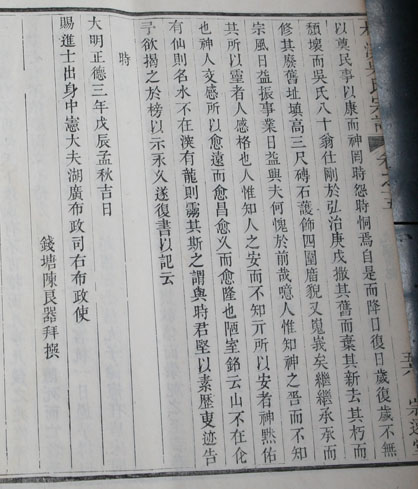 以奠民事以康而神罔時怨時恫焉自是而降日復日歲復歲不無
頹壞而吳氏八十翁仕剛於弘治庚戌撤其舊而棄其新去其朽而
修其廢舊址填高三尺磚石護飾四圍廇貌又嵬峩矣繼繼承承而
宗風日益振事業日益興夫何愧於前哉噫人惟知神之晋而不知
其所以靈者人感格也人惟知人之安而不知亓所以安者神黙佑
也神人交感所以愈遠而愈昌愈久而愈隆也陋室銘云山不在仑
有仙則名水不在㴱有龍則靈其斯之謂與時君堅以素歷東迹告
予欲揭之於榜以示永久遂復書以記云
時
大明正德三年戊辰孟秋吉日
賜進士出身中憲大夫湖廣布政司右布政使
錢塘陳良器拜撰